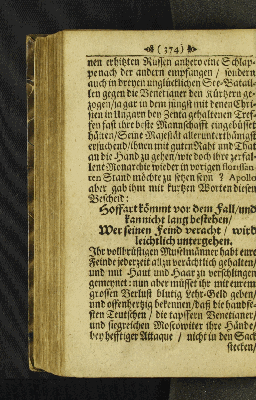 ( 374 )
nen erhitzten Russen anhero eine Schlap-
pe nach der andern empfangen / sondern
auch in dreyen unglücklichen See-Batail-
len gegen die Venetianer den Kürtzern ge-
zogen / ja gar in dem jüngst mit denen Chri-
sten in Ungarn bey Zenta gehaltenen Tref-
fen fast ihre beste Mannschafft eingebüsset
hätten / Seine Majestät allerunterthänigst
ersuchend / ihnen mit guten Raht und That
an die Hand zu gehen / wie doch ihre zerfal-
lene Monarchie wieder in vorigen florissan-
ten Stand möchte zu setzen seyn ? Apollo
aber gab ihn mit kurtzen Worten diesen
Bescheid:
Hoffart kömmt vor dem Fall / und
kan nicht lang bestehen /
Wer seinen Feind veracht / wird
leichtlich untergehen.
Ihr vollbrüstigen Muselmänner habt eure
Feinde jederzeit allzu verächtlich gehalten /
und mit Haut und Haar zu verschlingen
gemeynet: nun aber müsset ihr mit eurem
grossen Verlust blutig Lehr-Geld geben /
und offenhertzig bekennen / daß die handfe-
sten Teutschen / die tapffern Venetianer /
und siegreichen Moscoviter ihre Hände /
bey hefftiger Attaque / nicht in den Sack
stecken /